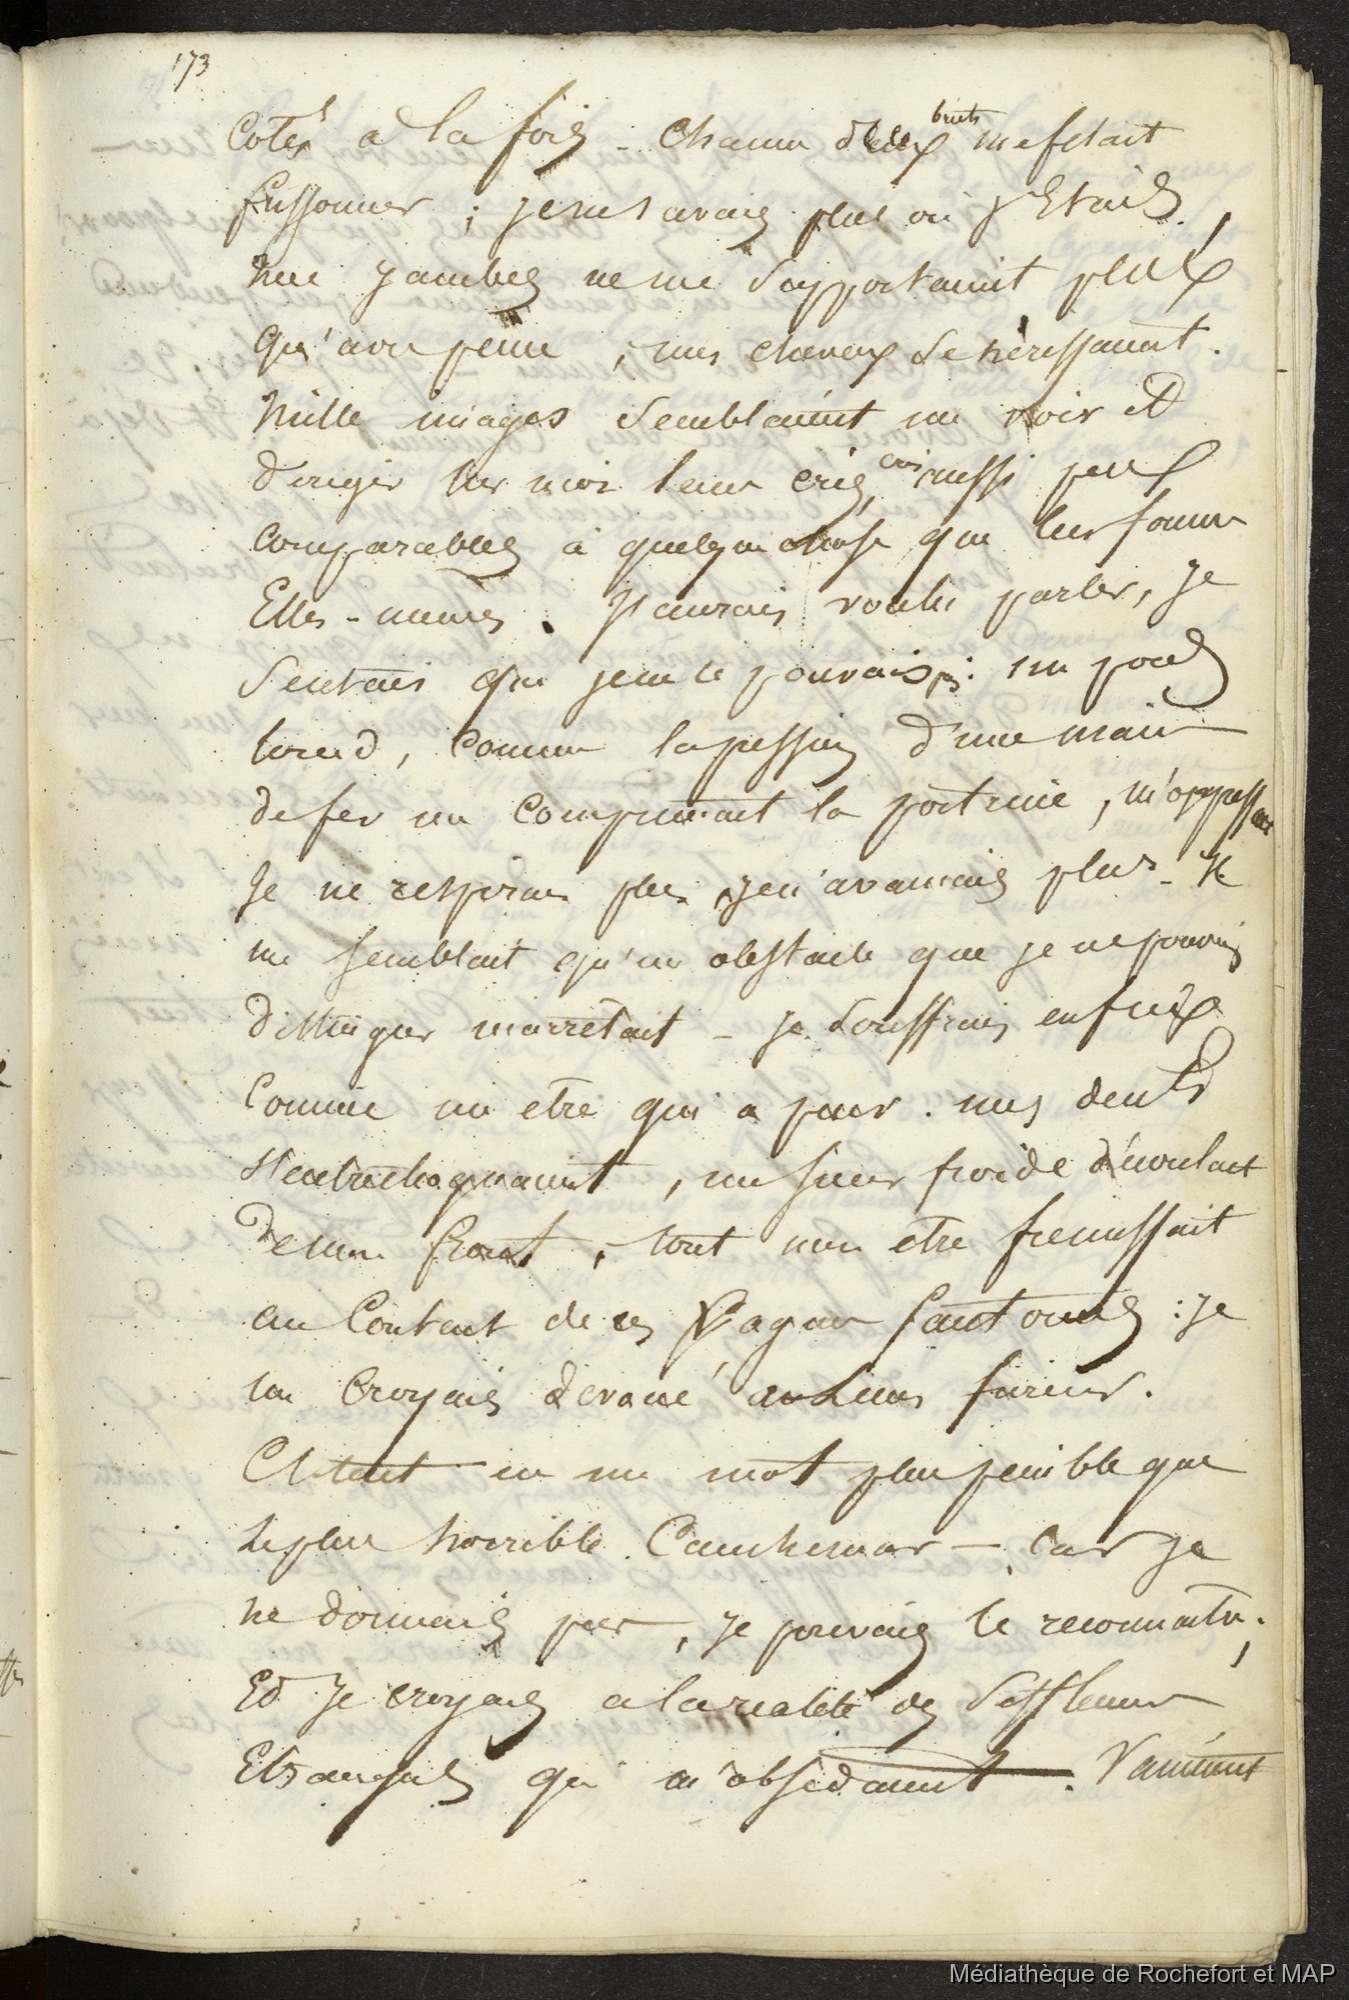 173
Cotés a la fois - chacun d'eux bruits mefesait
frissonner ; je ne savais plus où j'Etais,
mes jambes ne me supportaient plus
qu'avec peine ; mes cheveux se hérissaient.
Mille images semblaient me voir et
diriger sur moi leurs cris, cris aussi peu
comparables à quelque chose que leurs formes
Elles-mêmes. J'aurais voulu parler, je
sentais que je ne le pouvais pas : un poids
lourd, comme la pression d'une main
de fer me comprimait la poitrine, m'oppressait
Je ne respirais plus, je n'avancais plus - Il
me semblait qu'un obstacle que je ne pouvais
distinguer m'arrêtait - je souffrais enfin
comme un etre qui a peur. mes dents
s'entrechoquaient, une sueur froide découlait
de mon front, tout mon etre fremissait
au contact de ces Vagues fantomes : je
me croyais dévoué a leurs fureurs.
C'Etait en un mot plus penible que
le plus horrible Cauchemar - car je
ne dormais pas, je pouvais le reconnaitre;
Et Je croyais a la realité des siffleurs
Etranges qui m'obsédaient. Vainement
Médiathèque de Rochefort et MAP